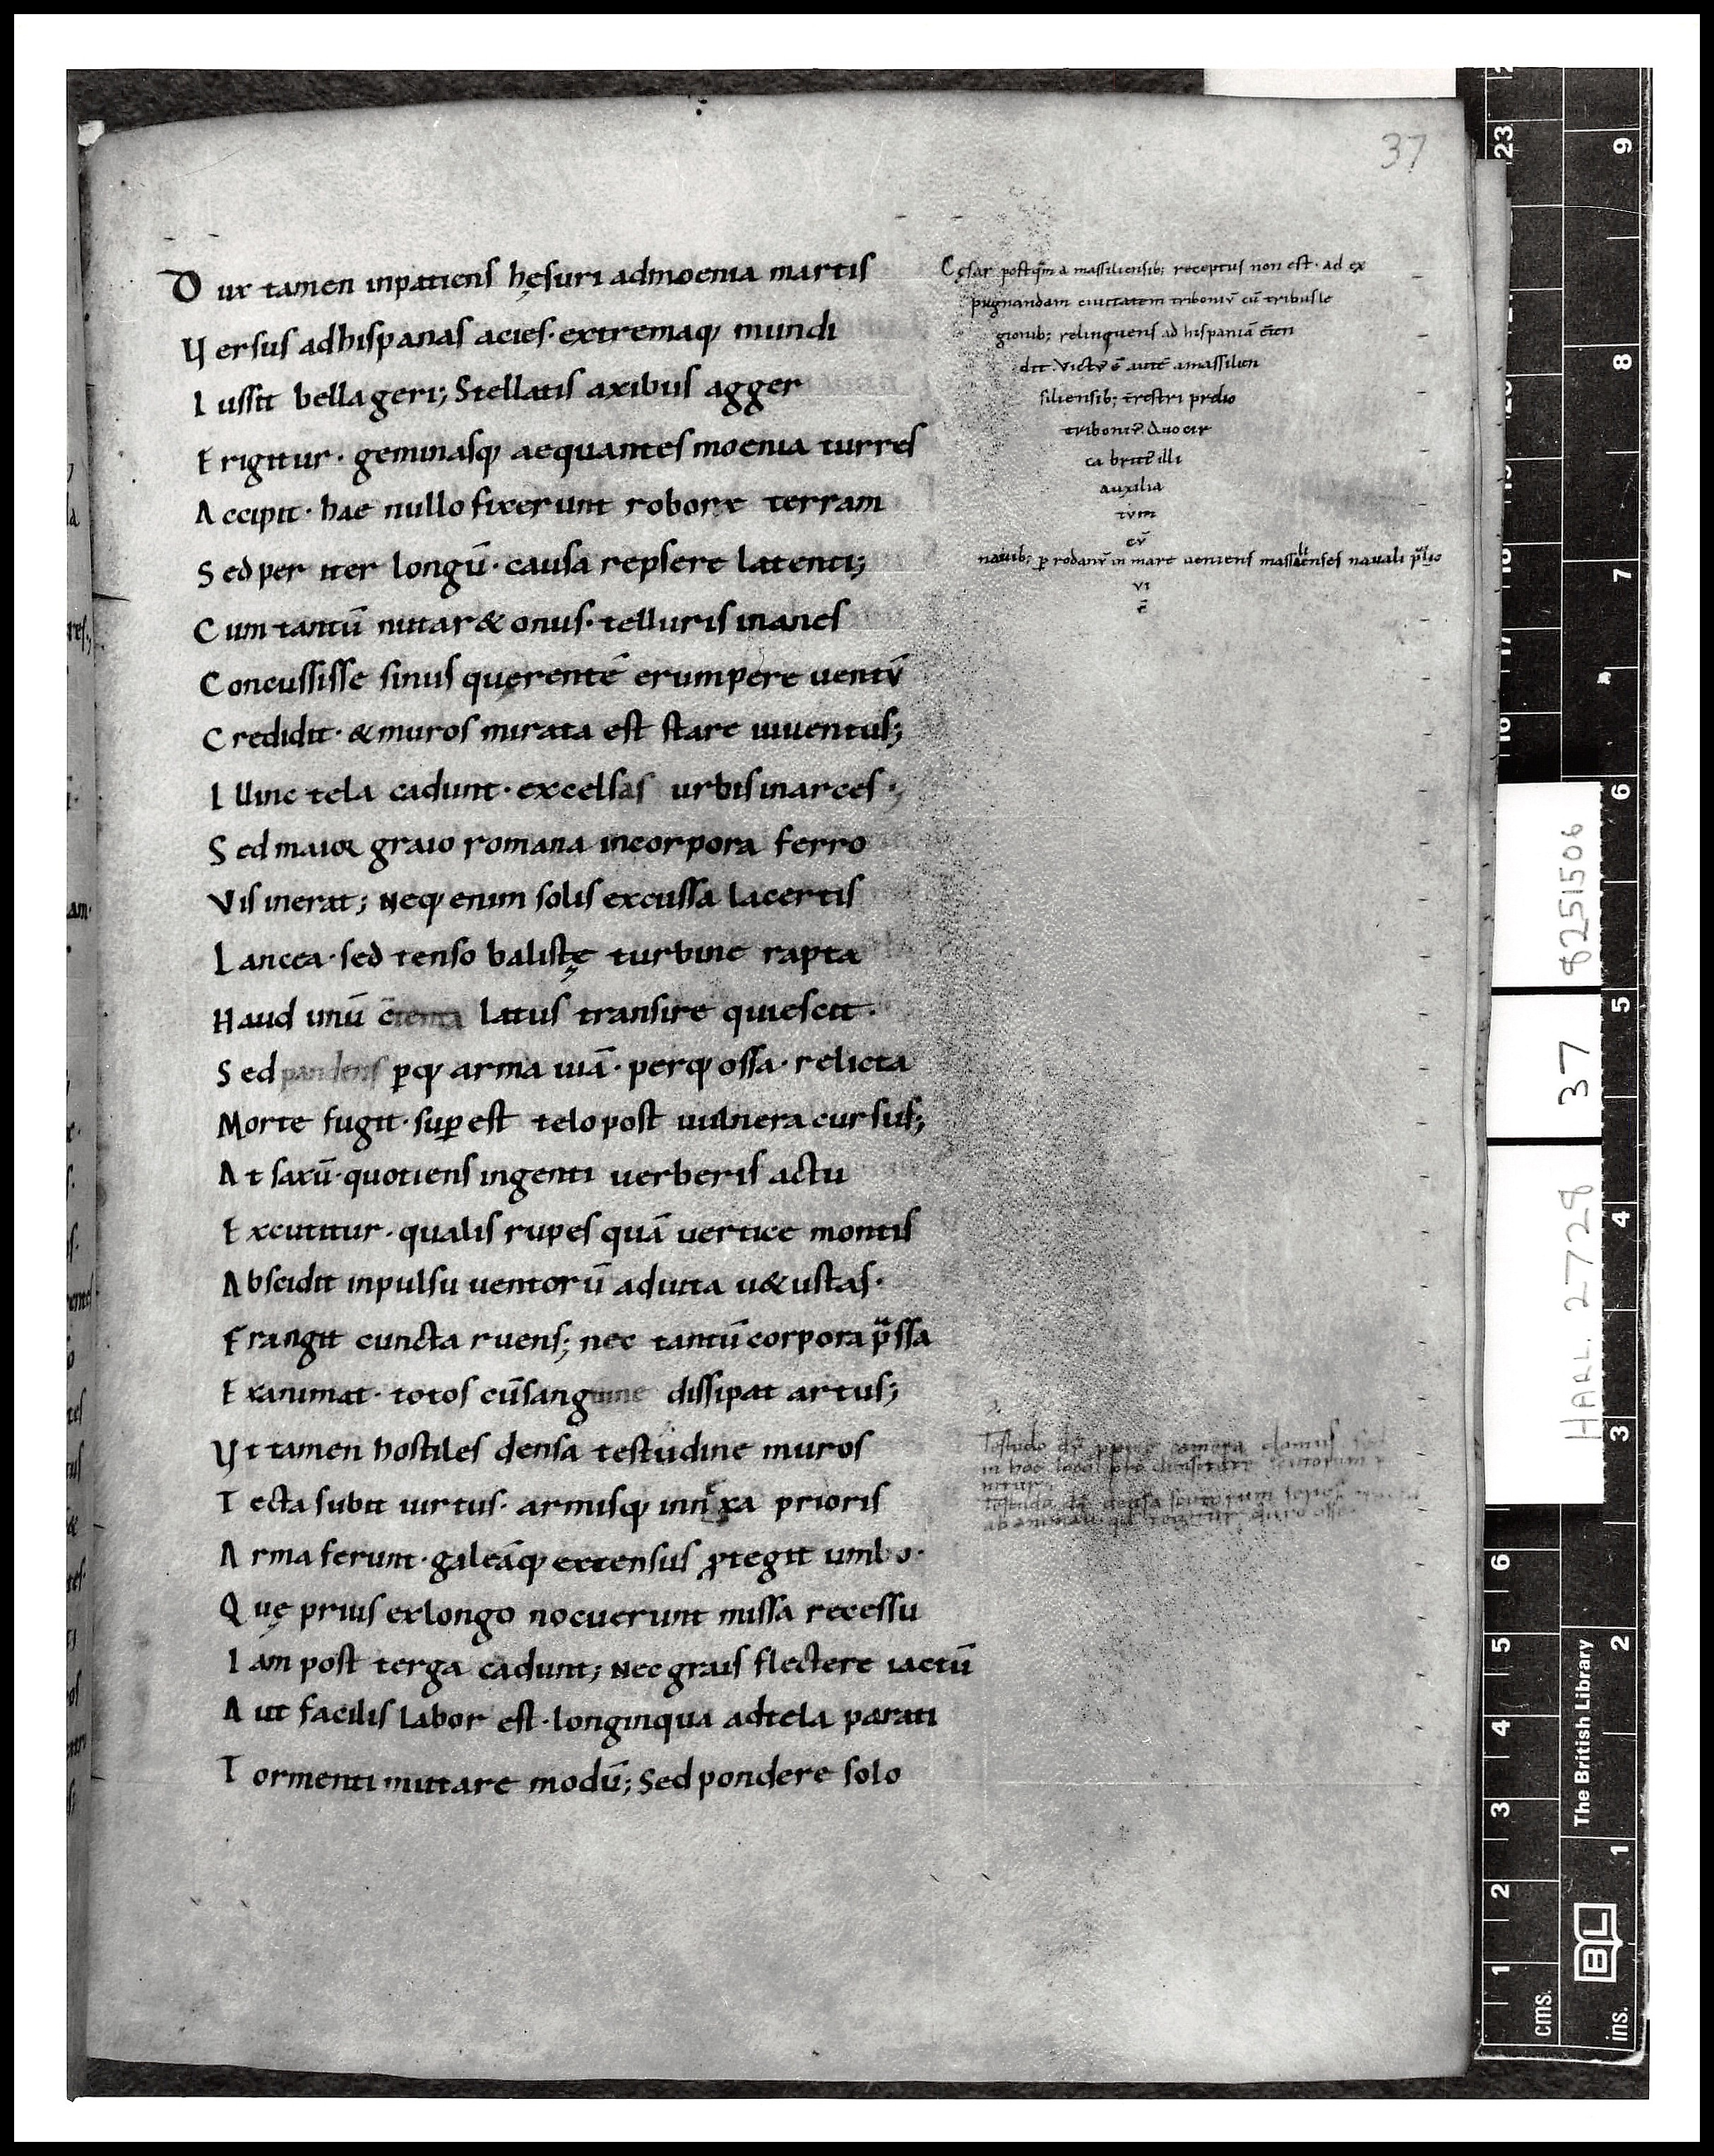 37
Dux tamen inpatiens hęsuri admoenia martis
Versus adhispanas acies· extremaq; mundi
Iussit bella geri; Stellatis axibus agger
Erigitur· geminasq; aequantes moenia turres
Accipit· hae nullo fixerunt robore terram
Sed per iter longū· causa repsere latenti;
Cum tantū nutar& onus· telluris inanes
Concussisse sinus querentē erumpere uentū
Credidit· & muros mirata est stare iuuentus;
Illinc tela cadunt· excelsas urbis inarces·;
Sed maior graio romana incorpora ferro
Vis inerat; Neq; enim solis excussa lacertis
Lancea· sed tenso balistę turbine rapta
Haud unū latus transire quiescit·
Sed pandens ꝑq; arma uiā· perq; ossa· relicta
Morte fugit· suꝑest telo post uulnera cursus;
At saxū· quotiens ingenti uerberis actu
Excutitur· qualis rupes quā uertice montis
Abscidit inpulsu uentorū adiuta u&ustas·
Frangit cuncta ruens; nec tantū corpora p̄ssa
Exanimat· totos cū sanguine dissipat artus;
Vt tamen hostiles densa testudine muros
Tecta subit uirtus· armisq; innexa prioris
Arma ferunt· galeāq; extensus ꝓtegit umbo·
Quę prius exlongo nocuerunt missa recessu
Iam post terga cadunt; Nec grais flectere iactū
Aut facilis labor est· longinqua adtela parati
Tormenti mutare modū; Sed pondere solo
Cęsar postq̄m a massiliensib; receptus non est· ad ex
pugnandam ciuitatem triboniū cū tribus le
gionib; relinquens ad hispaniā
dit. Victꝰ ē autē a massilien
siliensib;
auxilia
tum
cū
nauib; ꝑ rodanū in mare ueniens nauali p̄lio
vi
c̄
Testudo
in hoc loco
Testudo densa scutorum
HARL. 2728
37
8251506
The British Library
BL
cms. 1 2 3 4 5 6
ins. 1 2 3 4 5 6 7 8 9
16 17 23